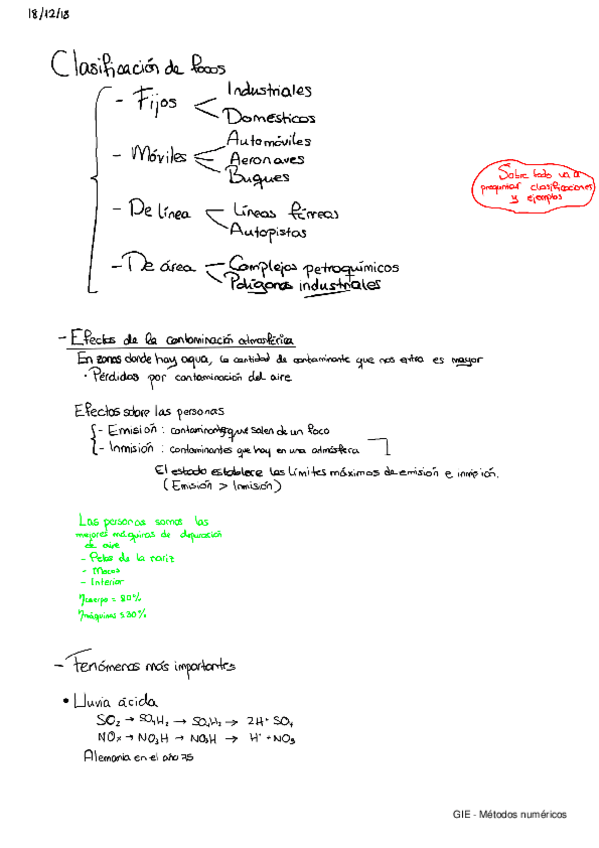 18/12/18
Clasificación de focos
- Fijos
Industriales
Domésticos
- Móviles
Automóviles
Aeronaves
Buques
Sobre todo va a
preguntar clasificaciones
y ejemplos
- De línea
Líneas férreas
Autopistas
- De área
Complejos petroquímicos
Polígonos industriales
- Efectos de la contaminación atmosférica
En zonas donde hay agua, la cantidad de contaminante que nos entra es mayor
• Pérdidas por contaminación del aire
Efectos sobre las personas
- Emisión : contaminantes que salen de un foco
- Inmisión : contaminantes que hay en una atmósfera
El estado establece los límites máximos de emisión e inmisión.
(Emisión > Inmisión)
Las personas somos las
mejores máquinas de depuración
de aire
- Pelos de la nariz
- Mocos
- Interior
η cuerpo = 80%
η máquinas ≤ 30%
- Fenómenos más importantes
• Lluvia ácida
SO₂ → SO₄H₂ → SO₄H₂ → 2H⁺ SO₄
NOx → NO₃H → NO₃H → H⁺ + NO₃
Alemania en el año 75
GIE - Métodos numéricos